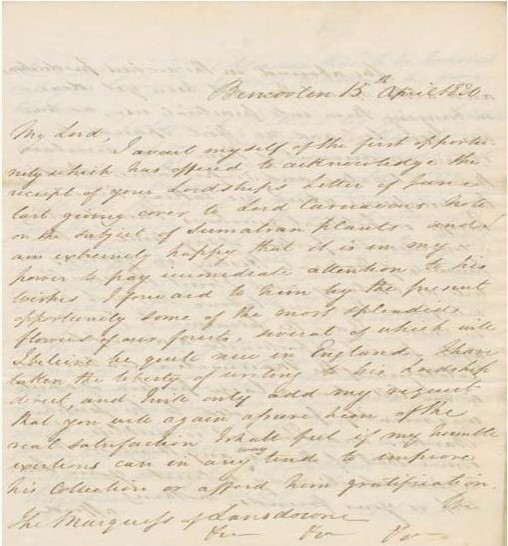 Bencoolen 15th April 1820
My Lord,
I avail myself of the first opportu-
nity which has offered to acknowledge the
receipt of your Lordship's Letter of June
last giving cover to Lord Carnarvons Note
on the subject of Sumatran plants - and I
am extremely happy that it is in my
power to pay immediate attention to his
wishes I forward to him by the present
opportunity some of the most splendid
flowers of our forests, several of which will
I believe be quite new in England, I have
taken the liberty of writing to his Lordship
direct and I will only add my request
that you will again assure him of the
real satisfaction I shall feel if my humble
exertions can in any way tend to improve
his Collection or afford him gratification.
The Marquess of Lansdowne
&c &c &c